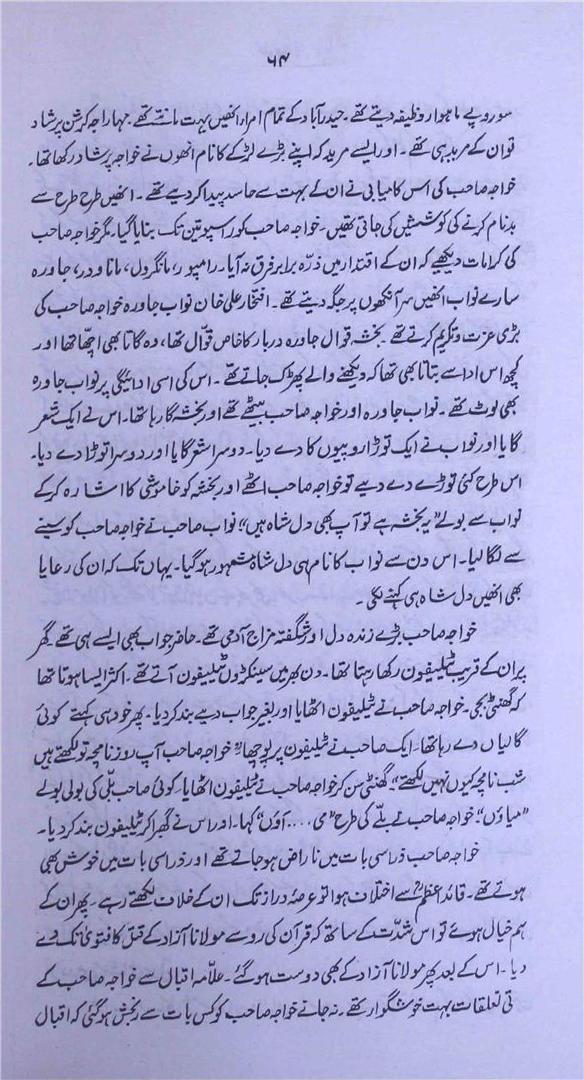 ۶۴
سو روپے ماہوار وظیفہ دیتے تھے۔ حیدرآباد کے تمام امراء انھیں بہت مانتے تھے۔ مہاراجہ کرشن پرشاد
تو ان کے مرید ہی تھے۔ اور ایسے مرید کہ اپنے بڑے لڑکے کا نام انھوں نے خواجہ پرشاد رکھا تھا۔
خواجہ صاحب کی اس کامیابی نے ان کے بہت سے حاسد پیدا کر دیے تھے۔ انھیں طرح طرح سے
بدنام کرنے کی کوششیں کی جاتی تھیں۔ خواجہ صاحب کو راسپوتین تک بنایا گیا۔ مگر خواجہ صاحب
کی کرامات دیکھیے کہ ان کے اقتدار میں ذرّہ برابر فرق نہ آیا۔ رامپور، مانگرول، مانا ودر، جاورہ
سارے نواب انھیں سر آنکھوں پر جگہ دیتے تھے۔ افتخار علی خان نواب جاورہ خواجہ صاحب کی
بڑی عزت و تکریم کرتے تھے۔ بخشہ قوال جاورہ دربار کا خاص قوّال تھا، وہ گاتا بھی اچھّا تھا اور
کچھ اس ادا سے بتاتا بھی تھا کہ دیکھنے والے پھڑک جاتے تھے۔ اس کی اسی ادائیگی پر نواب جاورہ
بھی لوٹ تھے۔ نواب جاورہ اور خواجہ صاحب بیٹھے تھے اور بخشہ گا رہا تھا۔ اس نے ایک شعر
گایا اور نواب نے ایک توڑا روپیوں کا دے دیا۔ دوسرا شعر گایا اور دوسرا توڑا دے دیا۔
اس طرح کئی توڑے دے دیے تو خواجہ صاحب اٹھے اور بخشہ کو خاموشی کا اشارہ کر کے
نواب سے بولے "یہ بخشہ ہے تو آپ بھی دل شاہ ہیں" نواب صاحب نے خواجہ صاحب کو سینے
سے لگا لیا۔ اس دن سے نواب کا نام ہی دل شاہ مشہور ہو گیا۔ یہاں تک کہ ان کی رعایا
بھی انھیں دل شاہ ہی کہنے لگی۔
خواجہ صاحب بڑے زندہ دل اور شگفتہ مزاج آدمی تھے۔ حاضر جواب بھی ایسے ہی تھے۔ گھر
پر ان کے قریب ٹیلیفون رکھا رہتا تھا۔ دن بھر میں سینکڑوں ٹیلیفون آتے تھے۔ اکثر ایسا ہوتا تھا
کہ گھنٹی بجی۔ خواجہ صاحب نے ٹیلیفون اٹھایا اور بغیر جواب دیے بند کر دیا۔ پھر خود ہی کہتے کوئی
گالیاں دے رہا تھا۔ ایک صاحب نے ٹیلیفون پر پوچھا "خواجہ صاحب آپ روزنامچہ تو لکھتے ہیں
شب نامچہ کیوں نہیں لکھتے" گھنٹی سن کر خواجہ صاحب نے ٹیلیفون اٹھایا۔ کوئی صاحب بلّی کی بولی بولے
"میاؤں" خواجہ صاحب نے بلّے کی طرح "می .... آؤں" کہا۔ اور اس نے گھبرا کر ٹیلیفون بند کر دیا۔
خواجہ صاحب ذرا سی بات میں ناراض ہو جاتے تھے اور ذرا سی بات میں خوش بھی
ہوتے تھے۔ قائد اعظمؒ سے اختلاف ہوا تو عرصۂ دراز تک ان کے خلاف لکھتے رہے۔ پھر ان کے
ہم خیال ہوئے تو اس شدّت کے ساتھ کہ قرآن کی رو سے مولانا آزاد کے قتل کا فتویٰ تک دے
دیا۔ اس کے بعد پھر مولانا آزاد کے بھی دوست ہو گئے۔ علّامہ اقبال سے خواجہ صاحب کے
تعلقات بہت خوشگوار تھے۔ نہ جانے خواجہ صاحب کو کس بات سے رنجش ہو گئی کہ اقبال